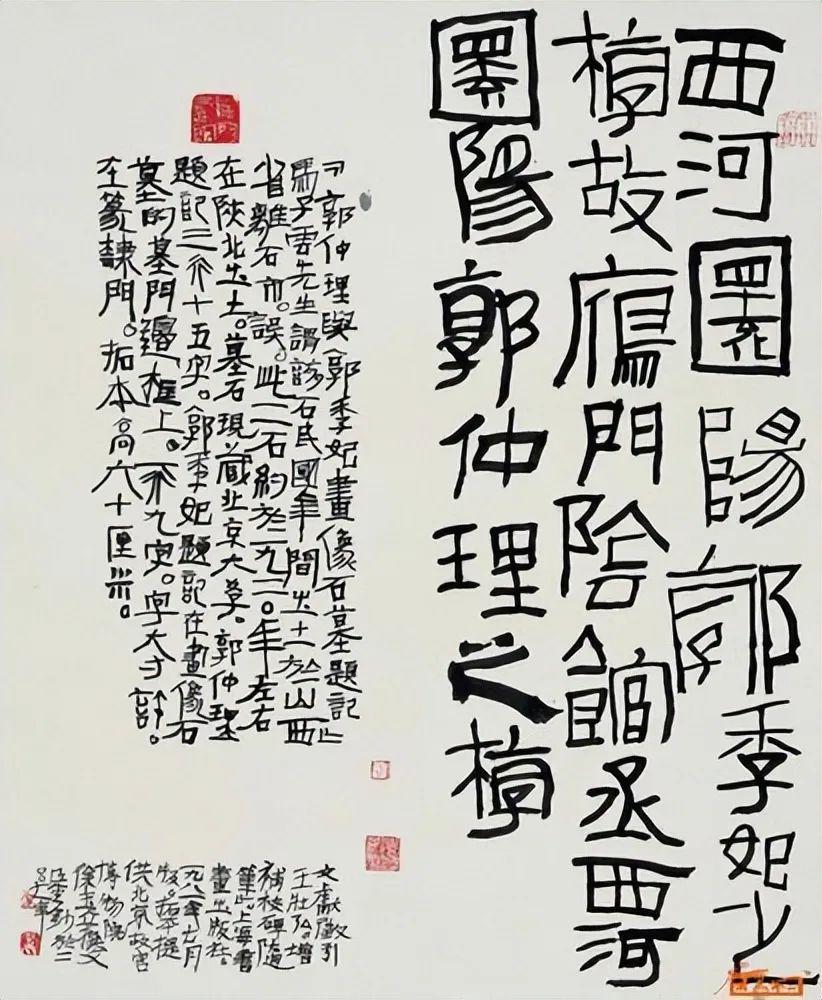 西河圜陽郭季妃之
椁故鴈門陰館丞西河
圜陽郭仲理之椁
郭仲理與郭季妃畫像石墓題記
馬子雲先生謂該石民國年間出土於山西
省離石市。誤。此二石約於一九二〇年左右
在陝北出土。墓石現藏北京大學。郭仲理
題記二行十五字。郭季妃題記在畫像石
墓的墓門邊框上。一行九字。字大寸許。
在篆隸間。拓本高六十厘米。
文獻徵引
王壯弘增
補校碑隨
筆 上海書
畫出版社。
一九八一年七月
版。拓本提
供北京故宮
博物院
徐玉立